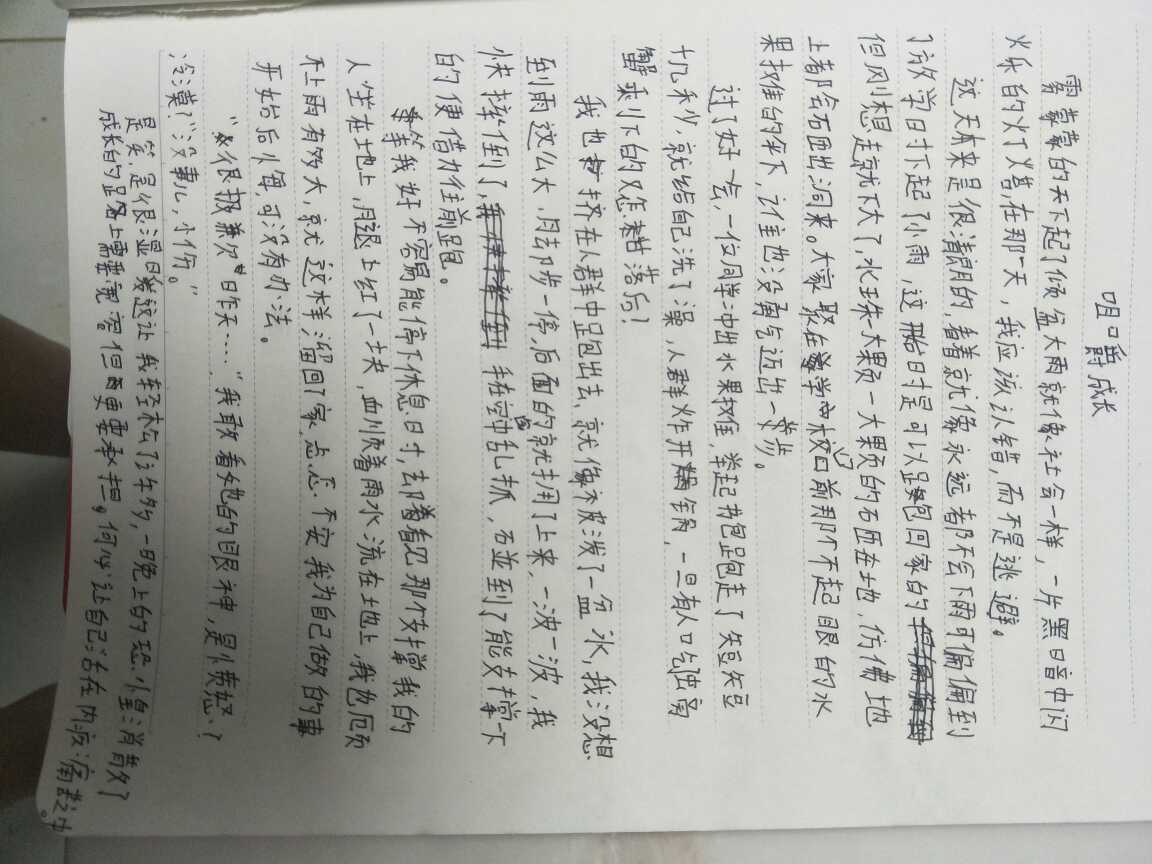 咀嚼成长
雾蒙蒙的天下起了倾盆大雨就像社会一样,一片黑暗中闪
烁的灯火甚,在那一天,我应该认错,而不是逃避。
这天本来是很清朗的,看着就像永远都不会下雨可偏偏到
了放学时下起了小雨,这开始时是可以跑回家的
但风刚想走就下大了,水珠一大颗一大颗的石匝在地,仿佛地
上都会石匝出洞来。大家聚在学校门口前那个不起眼的水
果摊的伞下,谁也没勇气迈出一步。
过了好一气,一位同学冲出水果摊,举起书包跑走了短短
十几秒,就给自己洗了澡,人群炸开锅,一旦有人吃独离
蟹剩下的怎甘落后?
我也挤在人群中跑出去,就像被泼了一盆水,我没想
到雨这么大,脚步一停,后面的就拥了上来,一波一波,我
快摔倒了,手在空中乱抓,碰到了能支撑下
的便借力往前跑。
等我好不容易能停下休息时,却看见那个支撑我的
人坐在地上,腿上红了一块,血顺着雨水流在地上,我也厄页
不上雨有多大,就这样溜回了家忐忑不安我为自己做的事
开始后悔,可没有办法。
“很抱歉欠”昨天……“我敢看她的眼神,是愤怒?
冷漠?“没事儿,小伤。”
是笑是很温暖这让我轻松了许多,一晚上的恐惶消散欠了
成长的路上需要宽容但更要承担。何必让自己活在内疚痛楚之中。